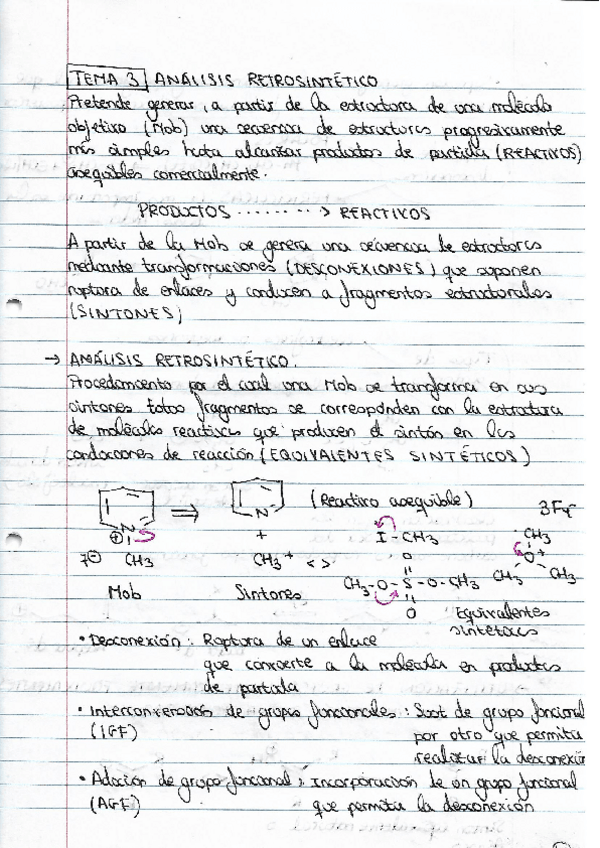 TEMA 3 ANÁLISIS RETROSINTÉTICO
Pretende generar, a partir de la estructura de una molécula
objetivo (Mob) una secuencia de estructuras progresivamente
más simples hasta alcanzar productos de partida (REACTIVOS)
asequibles comercialmente.
PRODUCTOS ········> REACTIVOS
A partir de la Mob se genera una secuencia de estructuras
mediante transformaciones (DESCONEXIONES) que suponen
ruptura de enlaces y conducen a fragmentos estructurales
(SINTONES)
→ ANÁLISIS RETROSINTÉTICO.
Procedimiento por el cual una Mob se transforma en sus
sintones. Estos fragmentos se corresponden con la estructura
de moléculas reactivas que producen el sintón en las
condiciones de reacción (EQUIVALENTES SINTÉTICOS)
(Reactivo asequible)
N ⇒ N
⊕ + I-CH3 CH3
CH3 CH3+ <> CH3-O-S-O-CH3 CH3 O+ CH3
O O
Mob Sintones Equivalentes
sintéticos
• Desconexión: Ruptura de un enlace
que convierte a la molécula en productos
de partida
• Interconversión de grupos funcionales: Sust de grupo funcional
(IGF) por otro que permita
realizar la desconexión
• Adición de grupo funcional: Incorporación de un grupo funcional
(AGF) que permita la desconexión